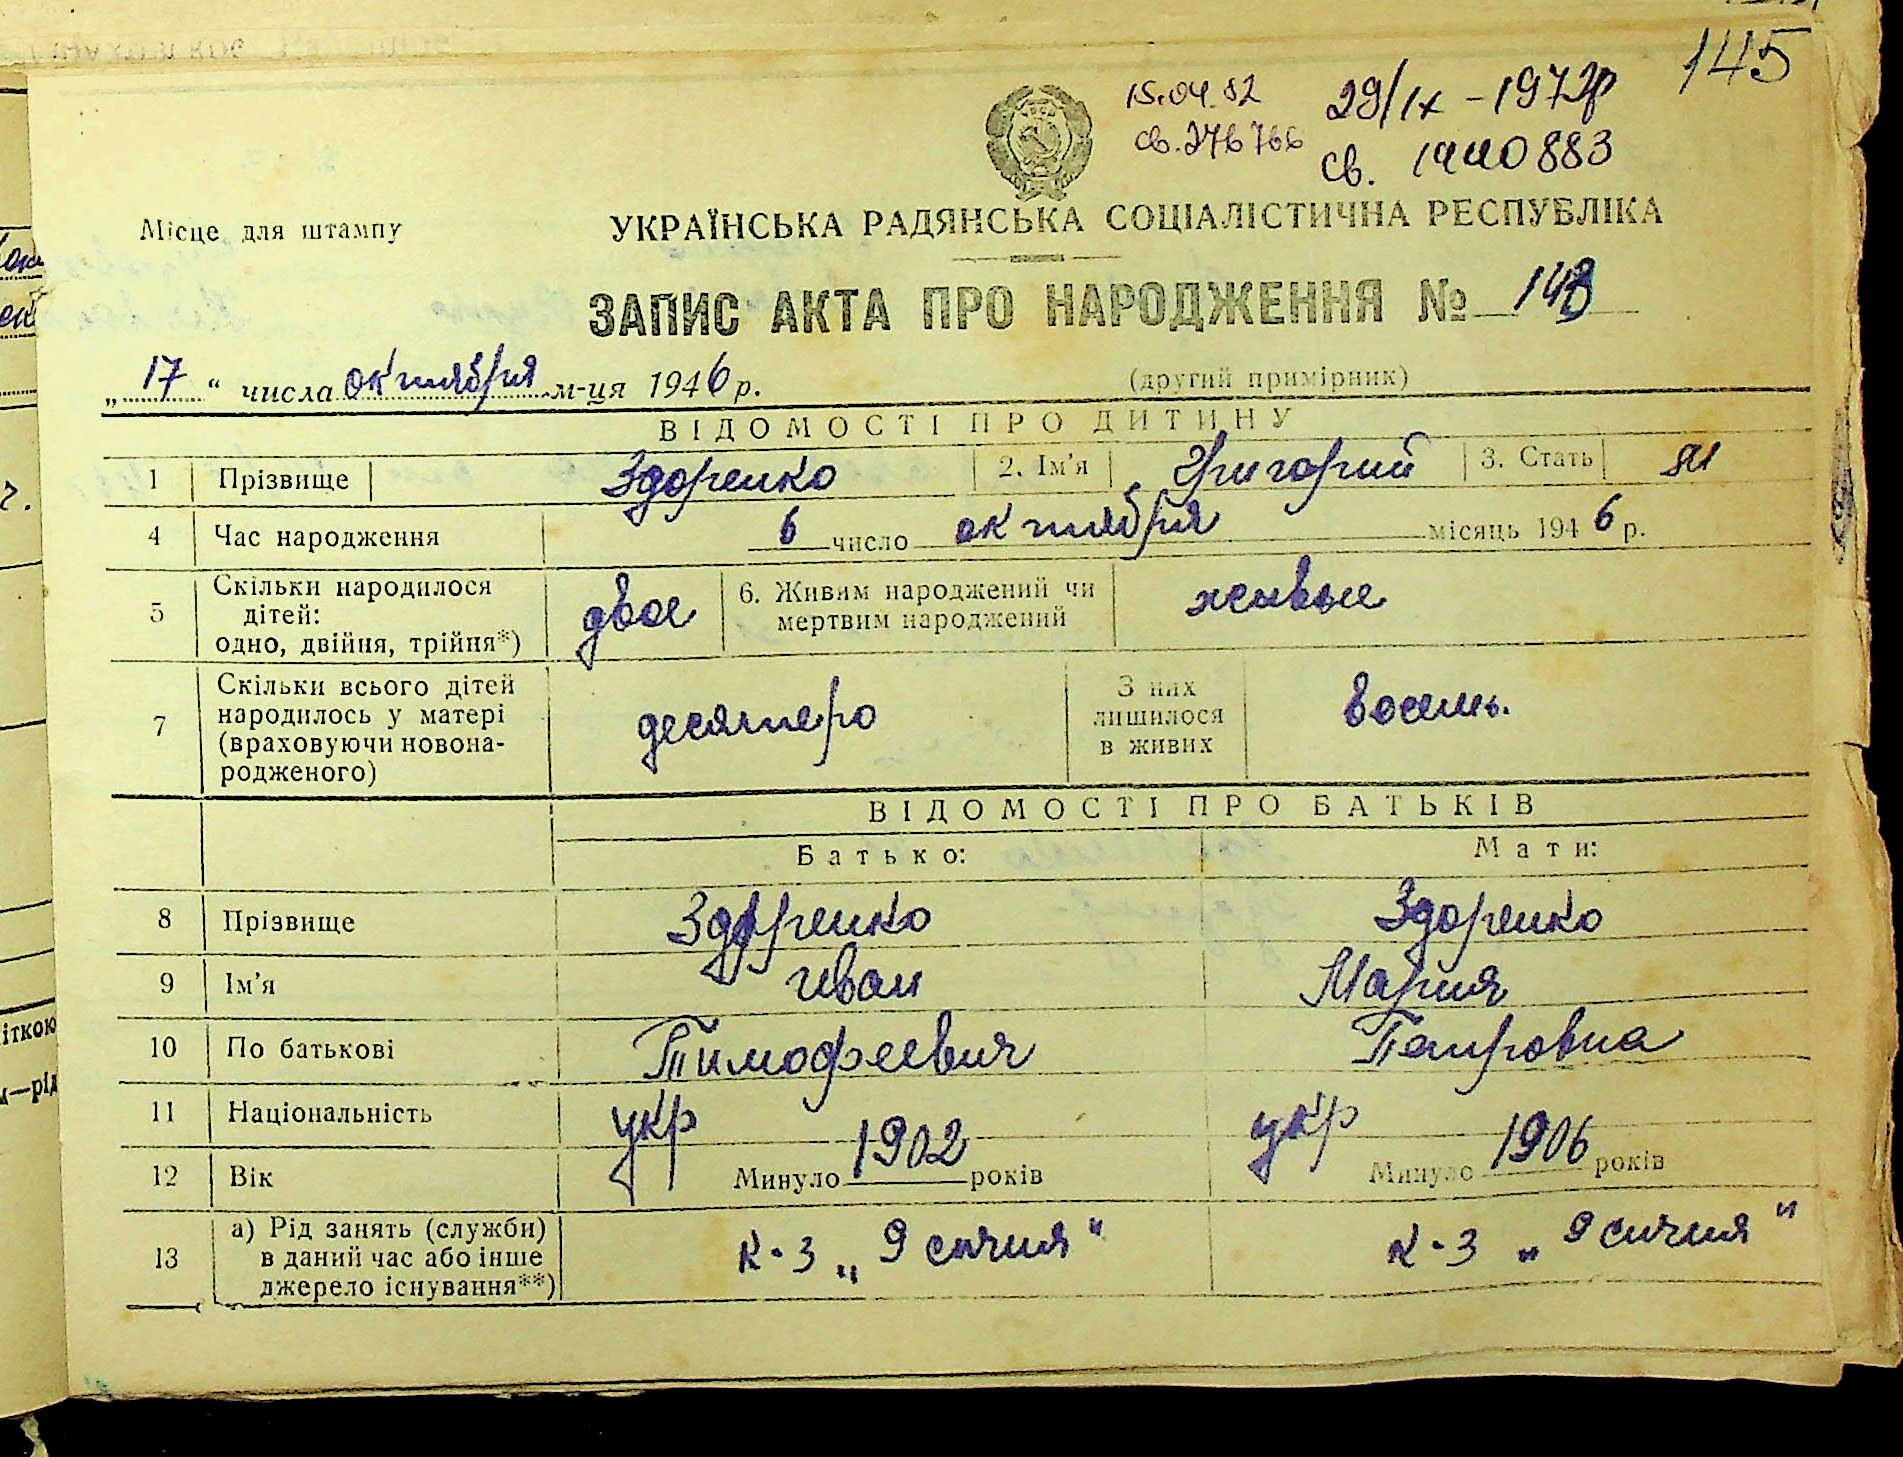 145
15.04.82
29/IX-1972р
св. 276766
св. 1440883
Місце для штампу
УКРАЇНСЬКА РАДЯНСЬКА СОЦІАЛІСТИЧНА РЕСПУБЛІКА
ЗАПИС АКТА ПРО НАРОДЖЕННЯ № 143
„17“ числа октября м-ця 1946 р.
(другий примірник)
ВІДОМОСТІ ПРО ДИТИНУ
1 Прізвище Здоренко 2. Ім'я Григорий 3. Стать м
4 Час народження 6 число октября місяць 1946 р.
5 Скільки народилося дітей: одно, двійня, трійня*) двое 6. Живим народжений чи мертвим народжений живые
7 Скільки всього дітей народилось у матері (враховуючи новонародженого) десятеро З них лишилося в живих восемь.
ВІДОМОСТІ ПРО БАТЬКІВ
Батько: Мати:
8 Прізвище Здоренко Здоренко
9 Ім'я Иван Мария
10 По батькові Тимофеевич Петровна
11 Національність укр укр
12 Вік Минуло 1902 років Минуло 1906 років
13 а) Рід занять (служби) в даний час або інше джерело існування**) к-з „9 сичня" к-з „9 сичня"